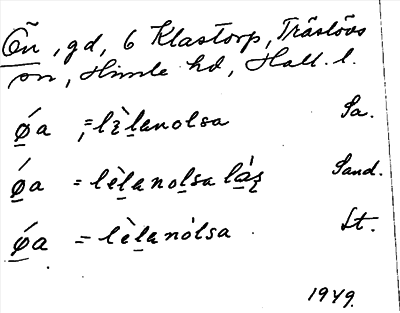 Õn, gd, 6 Klastorp, Träslövs
sn, Himle hd, Hall. l.
ǿa =, lèlanolsa Sa.
ǿa = lèlanolsa lás Sand.
ǿa = lèlanólsa Lt.
1949.